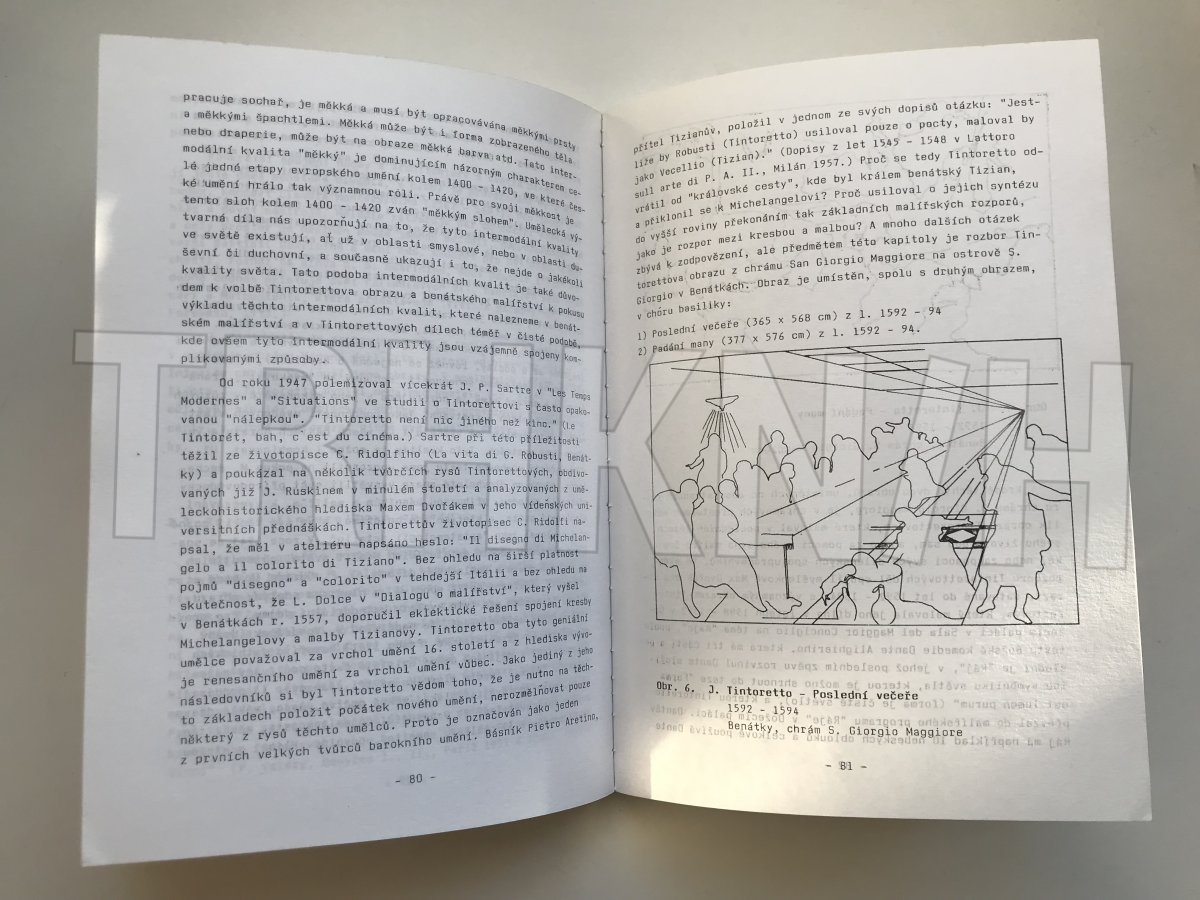 pracuje sochař, je měkká a musí být opracovávána měkkými prsty
a měkkými špachtlemi. Měkká může být i forma zobrazeného těla
nebo draperie, může být na obraze měkká barva atd. Tato inter-
modální kvalita "měkký" je dominujícím názorným charakterem ce-
lé jedné etapy evropského umění kolem 1400 - 1420, ve které čes-
ké umění hrálo tak významnou roli. Právě pro svoji měkkost je
tento sloh kolem 1400 - 1420 zván "měkkým slohem". Umělecká vý-
tvarná díla nás upozorňují na to, že tyto intermodální kvality
ve světě existují, ať už v oblasti smyslové, nebo v oblasti du-
ševní či duchovní, a současně ukazují i to, že nejde o jakékoli
kvality světa. Tato podoba intermodálních kvalit je také důvo-
dem k volbě Tintorettova obrazu a benátského malířství k pokusu
výkladu těchto intermodálních kvalit, které nalezneme v benát-
ském malířství a v Tintorettových dílech téměř v čisté podobě,
kde ovšem tyto intermodální kvality jsou vzájemně spojeny kom-
plikovanými způsoby.
Od roku 1947 polemizoval vícekrát J. P. Sartre v "Les Temps
Modernes" a "Situations" ve studii o Tintorettovi s často opako-
vanou "nálepkou". "Tintoretto není nic jiného než kino." (Le
Tintorét, bah, c'est du cinéma.) Sartre při této příležitosti
těžil ze životopisce C. Ridolfiho (La vita di G. Robusti, Benát-
ky) a poukázal na několik tvůrčích rysů Tintorettových, obdivo-
vaných již J. Ruskinem v minulém století a analyzovaných z umě-
leckohistorického hlediska Maxem Dvořákem v jeho vídeňských uni-
versitních přednáškách. Tintorettův životopisec C. Ridolfi na-
psal, že měl v ateliéru napsáno heslo: "Il disegno di Michelan-
gelo a il colorito di Tiziano". Bez ohledu na širší platnost
pojmů "disegno" a "colorito" v tehdejší Itálii a bez ohledu na
skutečnost, že L. Dolce v "Dialogu o malířství", který vyšel
v Benátkách r. 1557, doporučil eklektické řešení spojení kresby
Michelangelovy a malby Tizianovy. Tintoretto oba tyto geniální
umělce považoval za vrchol umění 16. století a z hlediska vývo-
je renesančního umění za vrchol umění vůbec. Jako jediný z jeho
následovníků si byl Tintoretto vědom toho, že je nutno na těch-
to základech položit počátek nového umění, nerozmělňovat pouze
některý z rysů těchto umělců. Proto je označován jako jeden
z prvních velkých tvůrců barokního umění. Básník Pietro Aretino,
- 80 -
přítel Tizianův, položil v jednom ze svých dopisů otázku: "Jest-
liže by Robusti (Tintoretto) usiloval pouze o pocty, maloval by
jako Vecellio (Tizian)." (Dopisy z let 1545 - 1548 v Lattoro
sull arte di P. A. II., Milán 1957.) Proč se tedy Tintoretto od-
vrátil od "královské cesty", kde byl králem benátský Tizian,
a přiklonil se k Michelangelovi? Proč usiloval o jejich syntézu
do vyšší roviny překonáním tak základních malířských rozporů,
jako je rozpor mezi kresbou a malbou? A mnoho dalších otázek
zbývá k zodpovězení, ale předmětem této kapitoly je rozbor Tin-
torettova obrazu z chrámu San Giorgio Maggiore na ostrově S.
Giorgio v Benátkách. Obraz je umístěn, spolu s druhým obrazem,
v chóru basiliky:
1) Poslední večeře (365 x 568 cm) z l. 1592 - 94
2) Padání many (377 x 576 cm) z l. 1592 - 94.
Obr. 6. J. Tintoretto - Poslední večeře
1592 - 1594
Benátky, chrám S. Giorgio Maggiore
- 81 -
TRHKNIH